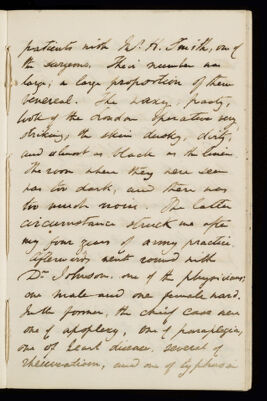 patients with Mr. H. Smith, one of
the surgeons. Their number was
large; a large proportion of them
venereal. The waxy, pasty,
look of the London Operative very
striking; the skin dusky, dirty,
and almost as black as the linen
The room where they were seen
was too dark, and there was
too much noise. The latter
circumstance struck me after
my four years of army practice.
Afterwards went round with
Dr. Johnson, one of the physicians;
one male and one female ward.
In the former, the chief cases were
one of apoplexy, one of paraplegia,
one of heart disease, several of
rheumatism, and one of typhus